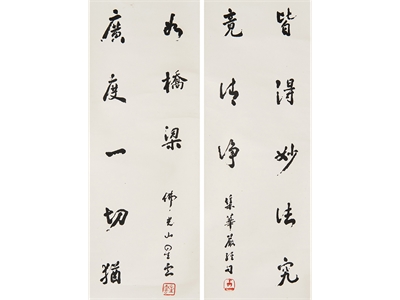 皆得妙法究
竟清淨
集華嚴經句
廣度一切猶
如橋梁
佛光山星雲